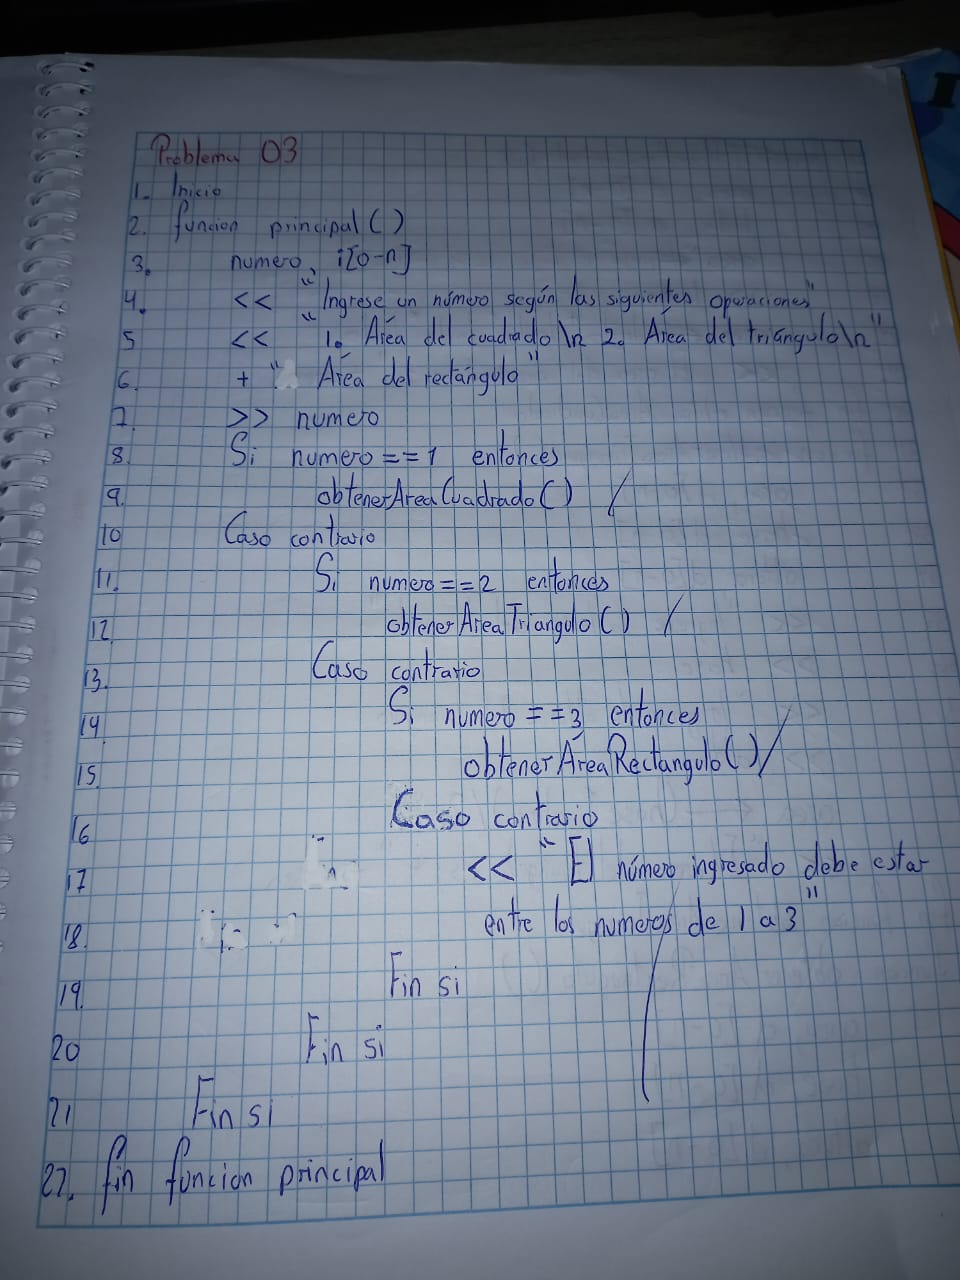 Problema 03
1. Inicio
2. funcion principal()
3. numero, i[0-n]
4. << "Ingrese un número según las siguientes operaciones"
5 << "1. Área del cuadrado \n 2. Área del triángulo \n"
6. + " Área del rectángulo"
7. >> numero
8. Si numero == 1 entonces
9. obtenerAreaCuadrado()
10 Caso contrario
11. Si numero == 2 entonces
12. obtenerAreaTriangulo()
13. Caso contrario
14 Si numero == 3 entonces
15. obtenerÁreaRectangulo()
16 Caso contrario
17 << "El número ingresado debe estar
18. entre los numeros de 1 a 3"
19. Fin si
20 Fin si
21 Fin si
22. fin funcion principal